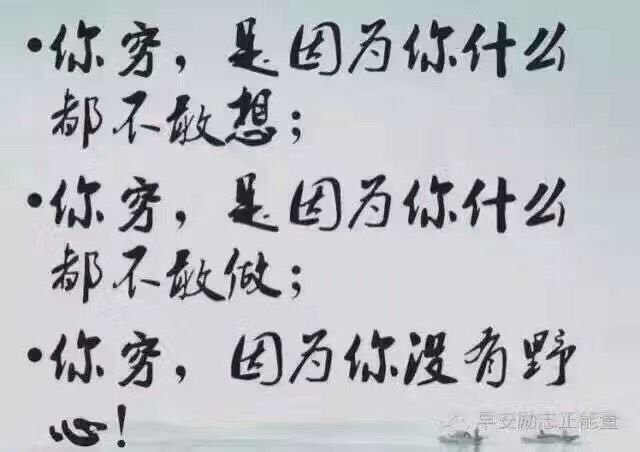 •你穷，是因为你什么
都不敢想；
•你穷，是因为你什么
都不敢做；
•你穷，因为你没有野
心！
早安励志正能量